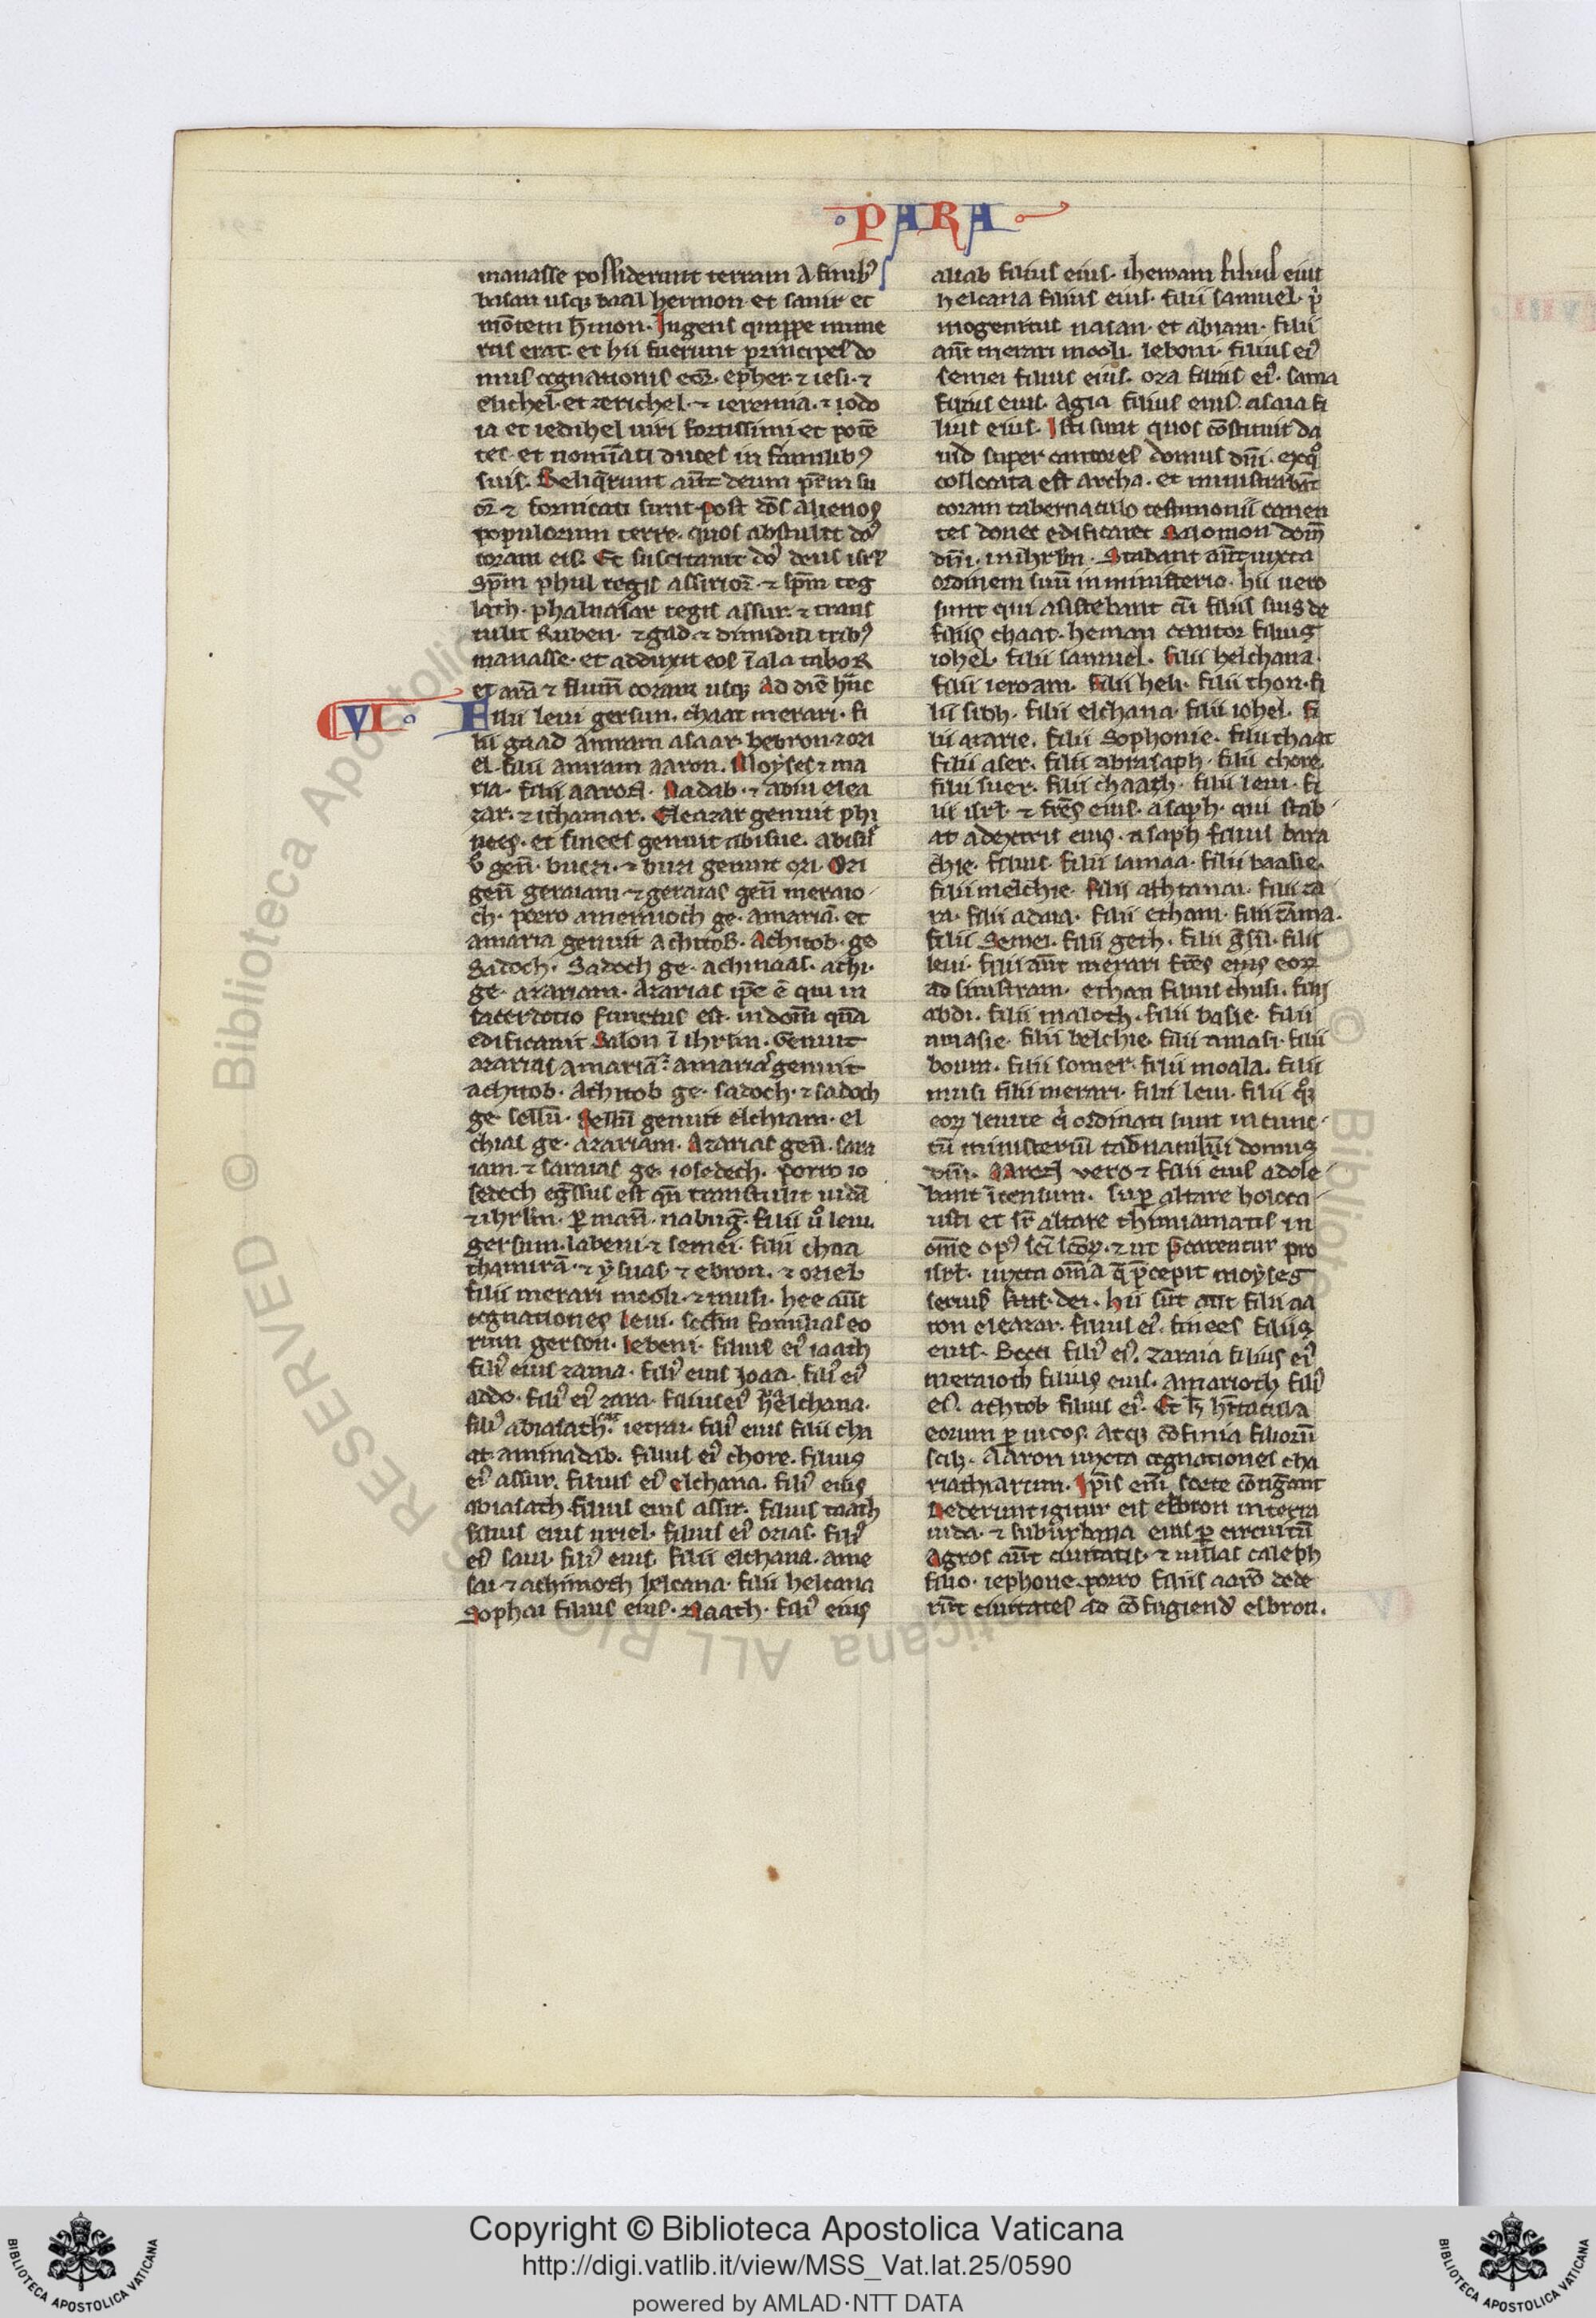 PARA
manasse possiderunt terram A finib᷒
basan usq; baal hermon et sanir et
mo̅tem h̅mon. Ingens quippe nume
rus erat. et hii fuerunt principes do
mus cognationis eoꝝ. epher. ⁊ iesi. ⁊
elichel. et zerichel. ⁊ ieremia. ⁊ iodo
ia et iedihel uiri fortissimi et pote̅
tes. et nomi̅ati duces in familiib᷒
suis. Reliq̅runt au̅t deum pr̅m su
oꝝ ⁊ fornicati sunt post d̅os alienos
populorum terre. quos abstulit do᷒
coram eis. Et suscitauit do᷒ deus isr̅l
sp̅m phul regis assirioꝝ. ⁊ sp̅m teg
lath. phalnasar regis assur. ⁊ trans
tulit Ruben. ⁊ gad ⁊ dimidiu̅ trib᷒
manasse. et adduxit eos i̅ ala taboR
et ara̅ ⁊ fluui̅ coram usq; Ad die̅ hu̅c
VI
Filii leui gersun. chaat merari. fi
lii gaad Amram asaar. hebron ⁊ ori
el. filii amram aaron. Moyses ⁊ ma
ria. filii aaron. Nadab. ⁊ abiu elea
zar. ⁊ ithamar. Eleazar genuit phi
nees. et finees genuit abisue. abisu᷒
v̊ gen̅. bucci. ⁊ buzi genuit ozi. Ozi
gen̅ geraiam ⁊ geraias gen̅ meraio
ch. porro amerioch ge. amaria̅. et
amaria genuit achitoB. Achitob. ge
Sadoch. Sadoch ge. achimaas. achi.
ge. azariam. Azarias ip̅e e̅ qui in
sacerdotio functus est. in dom̅ qua̅
edificauit Salon i̅ ihrlm. Genuit
azarias amaria̅. ⁊ amaria᷒ genuit
achitob. Achitob ge. sadoch. ⁊ sadoch
ge. sellu̅. Sellu̅ genuit elchiam. el
chias ge. azariam. Azarias gen̅. sara
iam. ⁊ saraias ge. iosedech. Porro io
sedech eg̅ssus est qn̅ transtulit iuda̅
⁊ ihrlm. ꝑ man̅. nabug̅. filii u̅ leui.
gersum. labeni ⁊ semei. filii chaa
th amra̅. ⁊ ysuas ⁊ ebron. ⁊ oziel
filii merari mooli. ⁊ musi. hee au̅t
cognationes leui. scd̅m familias eo
rum gerson. lebeni. filius ei᷒ iaath
fili᷒ eius zama. fili᷒ eius Joaa. fili᷒ ei᷒
addo. fili᷒ ei᷒ zara. filius ei᷒ helchana.
fili᷒ abiasath. ietrai. fili᷒ eius filii cha
at. aminadab. filius ei᷒ chore. filius
ei᷒ assur. filius ei᷒ elchana. fili᷒ eius
abiasath filius eius assir. filius taath
filius eius uriel. filius ei᷒ ozias. fili᷒
ei᷒ saul. fili᷒ eius. filii elchana. ame
sai ⁊ achimoth helcana. filii helcana
Sophai filius eius. Naath. fili᷒ eius
aliab filius eius. ihemam filius eius
helcana filius eius. filii samuel. p̅
mogenitus nasan. et abiam. filii
au̅t merari mooli. leboni. filius ei᷒
semei filius eius. oza filius ei᷒. sama
filius eius. Agia filius eius. asaia fi
lius eius. Isti sunt quos co̅stituit da
uid super cantores domus dn̅i. ex q̊
collocata est archa. et ministraba̅t
coram tabernaculo testimonii canen
tes donec edificaret Salomon dom̅
dn̅i. in ihrlm. Stabant au̅t iuxta
ordinem suu̅ in ministerio. hii uero
sunt qui asistebant cu̅ filiis suis de
filiis chaat. heman cantor filius
iohel. filii samuel. filii helchana.
filii ieroam. filii heli. filii thon. fi
lii siph. filii elchana filii iohel. fi
lii azarie. filii Sophonie. filii thaat
filii aser. filii abiasaph. filii chore.
filii suer. filii chaath. filii leui. fi
lii isrl. ⁊ fr̅es eius. asaph. qui stab
at adextris eius. asaph filius bara
chie. filius. filii samaa. filii baasie.
filii melchie. filii athanai. filii za
ra. filii adaia. filii etham. filii ta̅ma.
filii Semei. filii geth. filii g̅su̅. filii
leui. filii au̅t merari fr̅es eius eoꝝ
ad sinistram. ethan filius chusi. filii
abdi. filii maloch. filii basie. filii
amasie. filii belchie. filii amasi. filii
boum. filii somer. filii moala. filii
musi filii merari. filii leui. filii
eoꝝ leuite q̅ ordinati sunt in cunc
tu̅ ministeriu̅ tab̅naculi domus
dn̅i. AAron vero ⁊ filii eius adole
bant i̅censum. suꝑ altare holoca
usti et sr̅ altare thimiamatis in
om̅e op᷒ sci̅ sco̅ꝝ. ⁊ ut p̅carentur pro
isrl. iuxta om̅ia q̅ p̅cepit moyses
seruus dei. hii su̅t aut filii aa
ron eleazar. filius ei᷒. finees filius
eius. Bocci fili᷒ ei᷒. zaraia filius ei᷒
meraioth filius eius. Amarioth fili᷒
ei᷒. achitob filius ei᷒. Et h̅ h̅itacula
eorum ꝑ uicos. Atq; co̅finia filioru̅
scil. Aaron iuxta cognationes cha
riathiarum. Ip̅is eni̅ sorte co̅tig̅ant
Dederunt igitur eis ebron in terra
iuda. ⁊ suburbana eius ꝑ circuitu̅
Agros au̅t ciuitatis. ⁊ uillas caleph
filio. iephone. porro filiis aaro̅ dede
ru̅t ciuitates ad co̅fugiend̅ esbron.
Copyright © Biblioteca Apostolica Vaticana
http://digi.vatlib.it/view/MSS_Vat.lat.25/0590
powered by AMLAD·NTT DATA